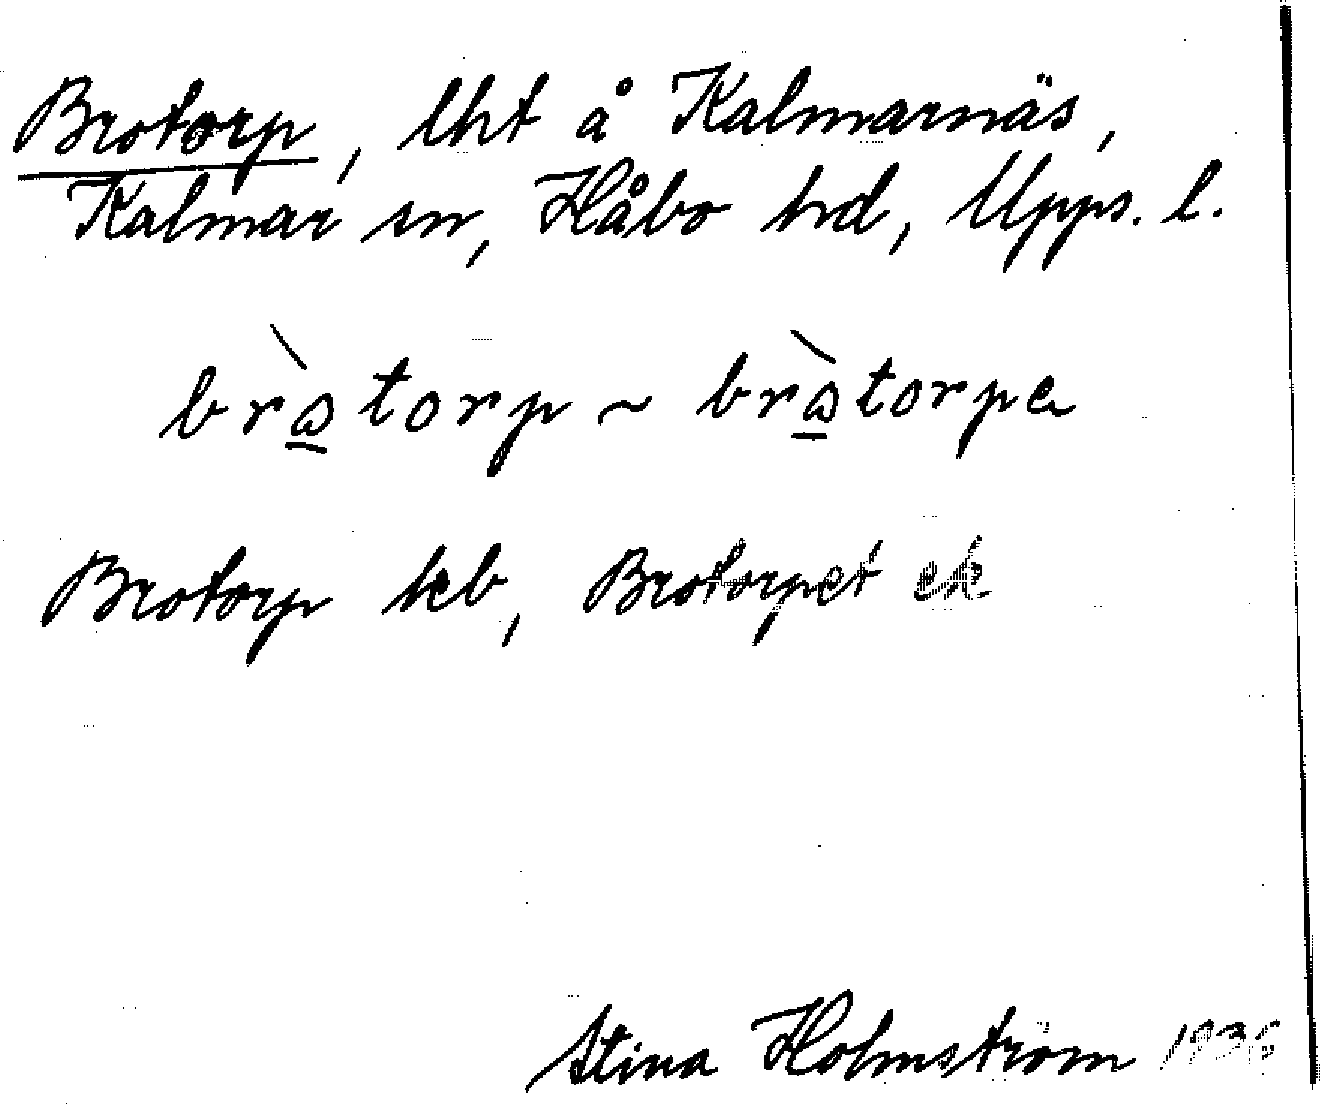 Brotorp, lht å Kalmarnäs,
Kalmar sn, Håbo hd, Upps. l.
brà̱torp ~ brà̱torpe
Brotorp keb, Brotorpet ek
Stina Holmström 1936